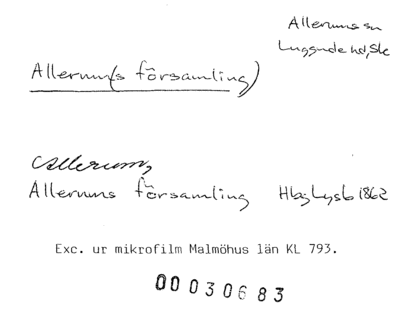 Allerums sn
Luggude hd, Sk
Allerum(s församling)
Allerum,
Allerums församling Hbg Lysb 1862
Exc. ur mikrofilm Malmöhus län KL 793.
00030683